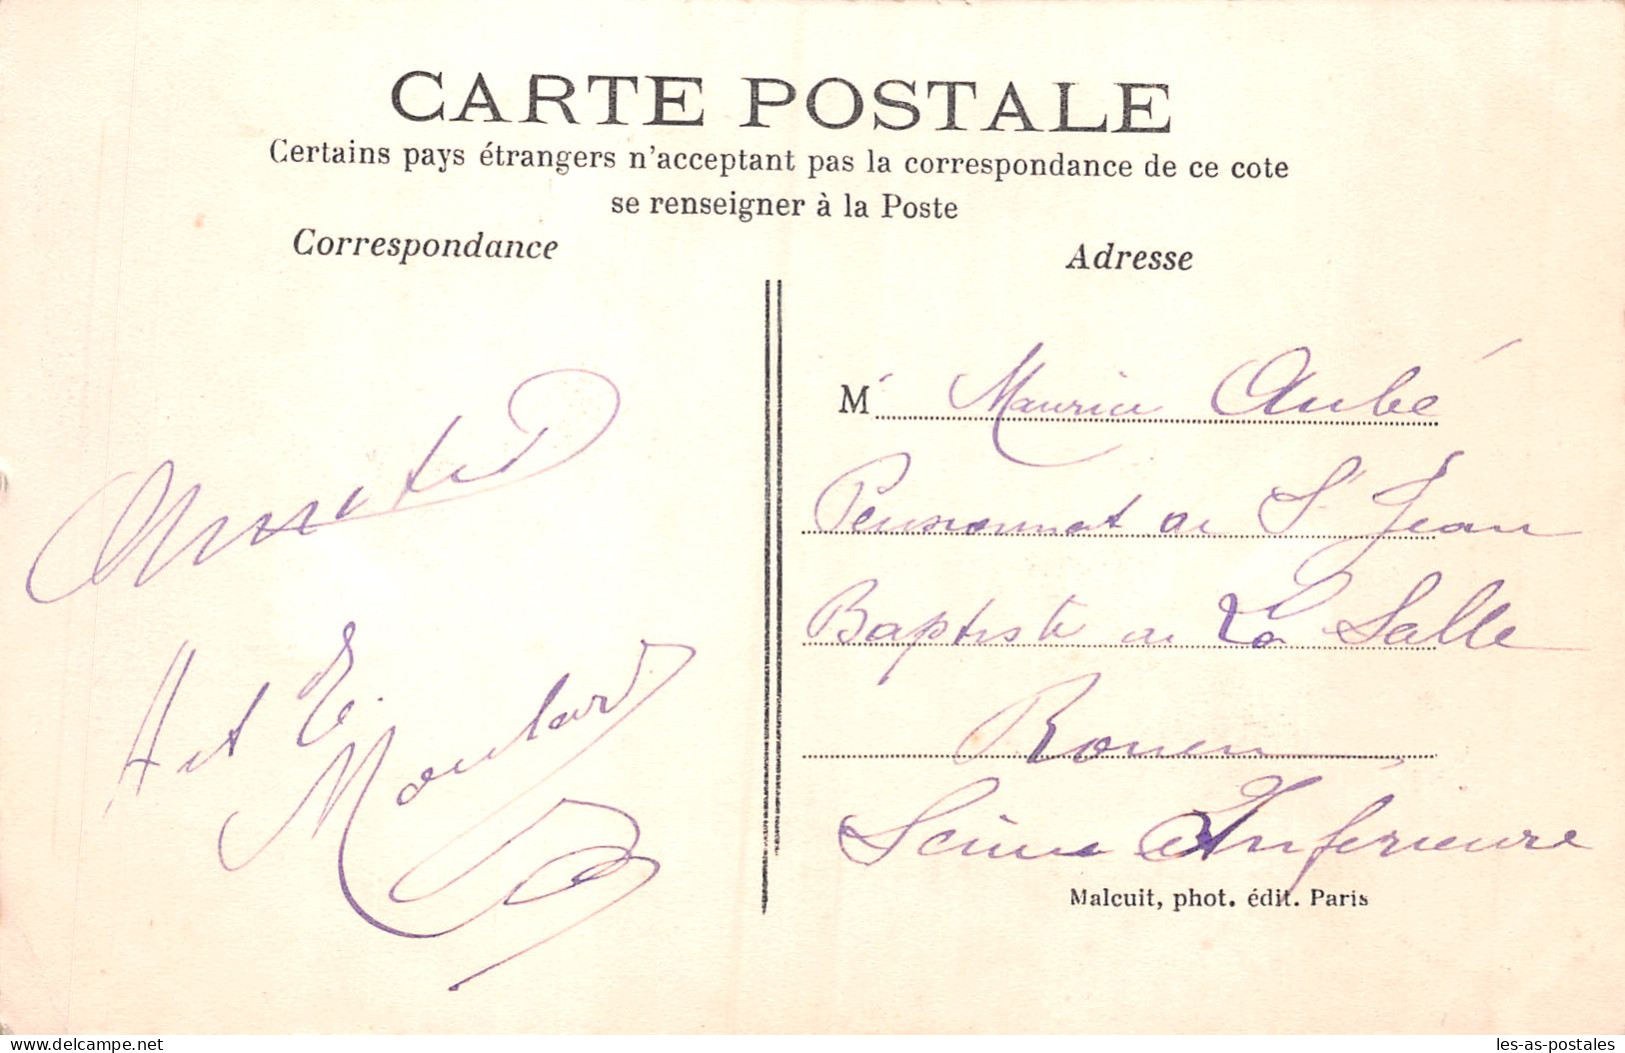 CARTE POSTALE
Certains pays étrangers n'acceptant pas la correspondance de ce cote
se renseigner à la Poste
Correspondance
Adresse
Amitié
H et E. Moulard
M Maurice Aubé
Pensionnat de St Jean
Baptiste de La Salle
Rouen
Seine Inférieure
Malcuit, phot. édit. Paris
www.delcampe.net
les-as-postales